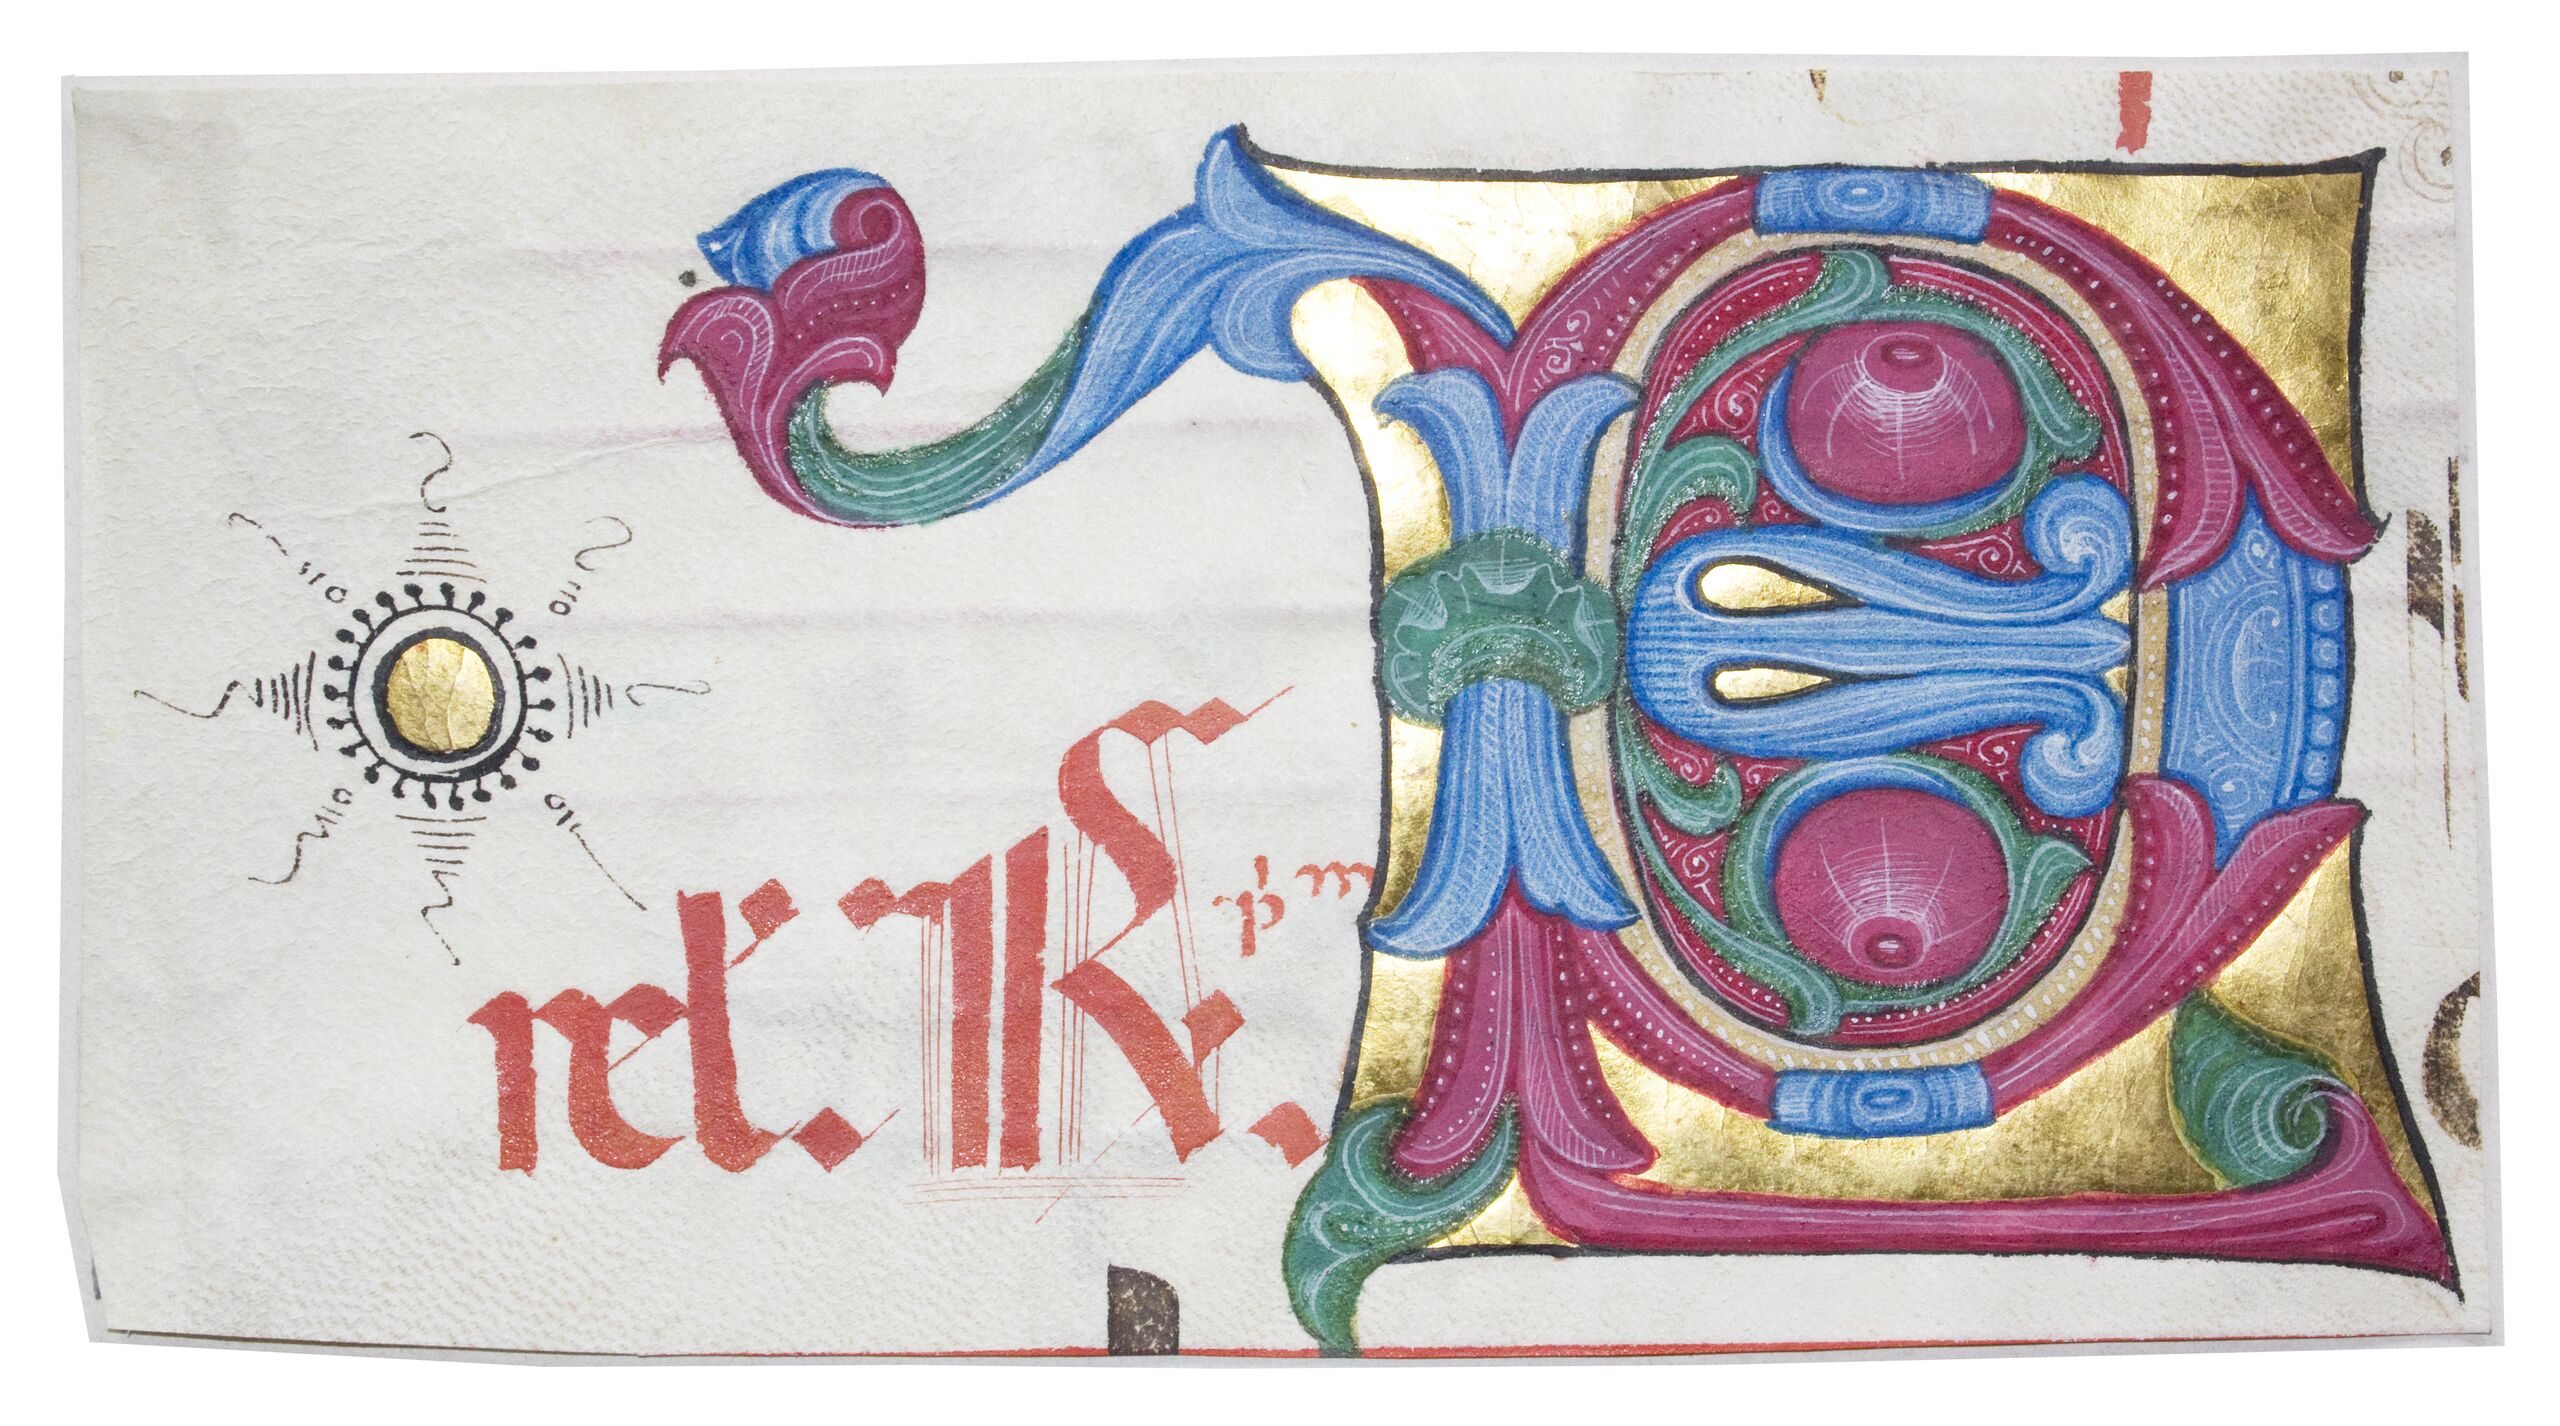 p͛m
rel̓. R̃. D